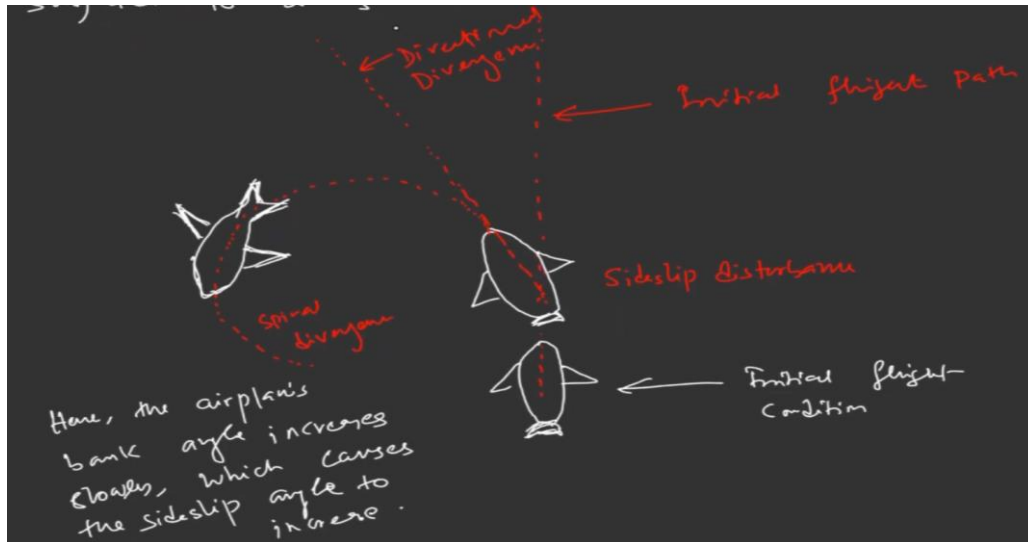 Directional
Divergence
Initial flight path
Sideslip disturbance
spiral
divergence
Initial flight
Condition
Here, the airplane's
bank angle increases
slowly, which causes
the sideslip angle to
increase.